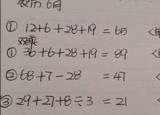 ① 12+6+28+19 = 65
① 36+6+28+19 = 89
② 68+7-28 = 47
③ 29+27+8÷3 = 21